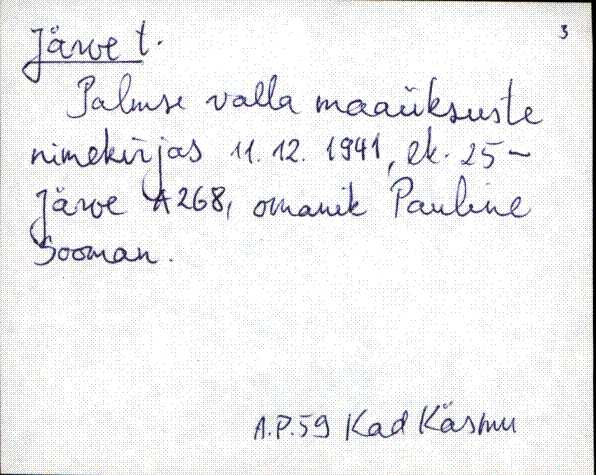 Järve t.
3
Palmse valla maaüksuste
nimekirjas 11. 12. 1941, lk. 25 –
Järve A268, omanik Pauline
Sooman.
A.P.59 Kad Käsmu